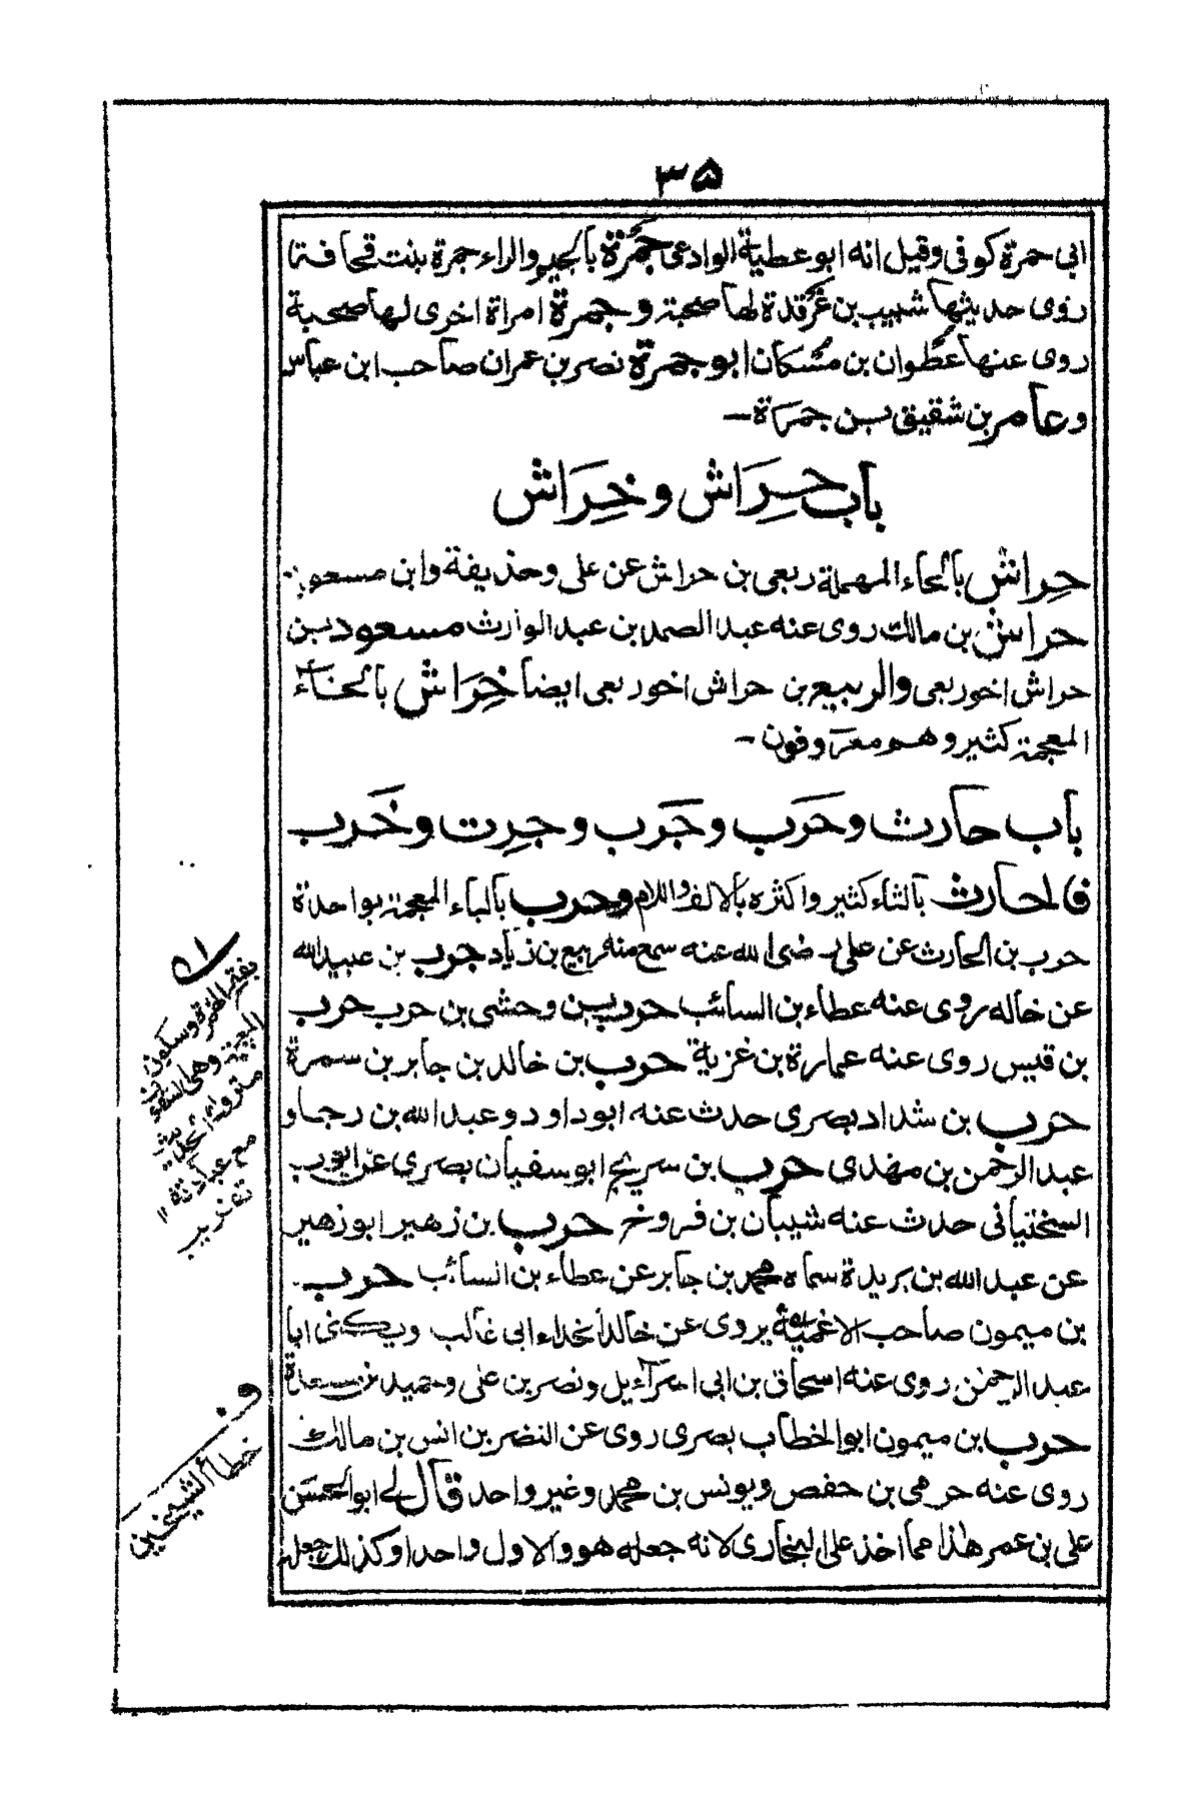 ۳۵
ابي حمزة كوفي وقيل انه ابو عطية الوادعي جَمْرَة بالجيم والراء جمرة بنت قحافة
روى حديثها شبيب بن غَرقدة لها صحبة وجمرة امراة اخرى لها صحبة
روى عنها عَطَوان بن مُشكان ابو جمرة نصر بن عمران صاحب ابن عباس
وعامر بن شقيق بن جمرَة –
باب حِرَاش و خِرَاش
حِراش بالحاء المهملة ربعى بن حراش عن على وحذيفة وابن مسعود
حراش بن مالك روى عنه عبد الصمد بن عبد الوارث مسعود بن
حراش اخو ربعى والربيع بن حراش اخو ربعى ايضا خِرَاش بالخاء
المعجمة كثير وهم معرَوفون –
باب حارث و حَرب و جَرب و جرِت و خَرب
فالحارث بالثاء كثير واكثره بالالف واللام وحرب بالباء المعجمة بواحدة
حرب بن الحارث عن على رضى الله عنه سمع منه ربيع بن زياد حرب بن عبيد الله
عن خاله روى عنه عطاء بن السائب حرب بن وحشى بن حرب حرب
بن قيس روى عنه عمارة بن غزية حرب بن خالد بن جابر بن سمرة
حرب بن شداد بصرى حدث عنه ابو داود وعبد الله بن رجا و
عبد الرحمن بن مهدى حرب بن سريج ابو سفيان بصرى عن ايوب
السختيانى حدث عنه شيبان بن فروخ حرب بن زهير ابو زهير
عن عبد الله بن بريدة سماه محمد بن جابر عن عطاء بن السائب حرب
بن ميمون صاحب الاغمية يروى عن خالد الحذاء ابى غالب ويكنى ابا
عبد الرحمن روى عنه اسحاق بن ابى اسرآءيل ونصر بن على وحميد بن مسعدة
حرب بن ميمون ابو الخطاب بصرى روى عن النضر بن انس بن مالك
روى عنه حرمى بن حفص ويونس بن محمد وغير واحد قال لى ابو الحسن
على بن عمر هذا مما اخذ على البخارى لانه جعله هو والاول واحدا وكذلك جعله
بفتح الهمزة وسكون
المعجمة وهى السقف
متروك الحديث
مع عبادته ۱۱
تقريب
و
خطأ الشيخين